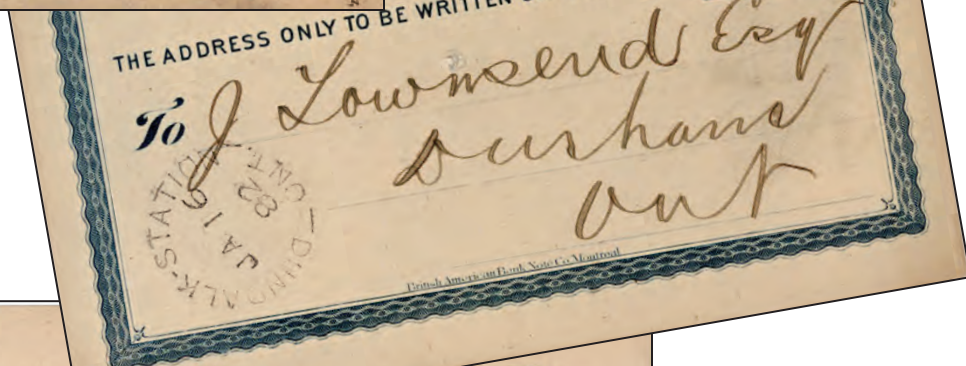 THE ADDRESS ONLY TO BE WRITTEN
To J Townsend Esq
Durham
Ont
DUNDALK-STATION
ONT.
JA 16
82
British American Bank Note Co. Montreal